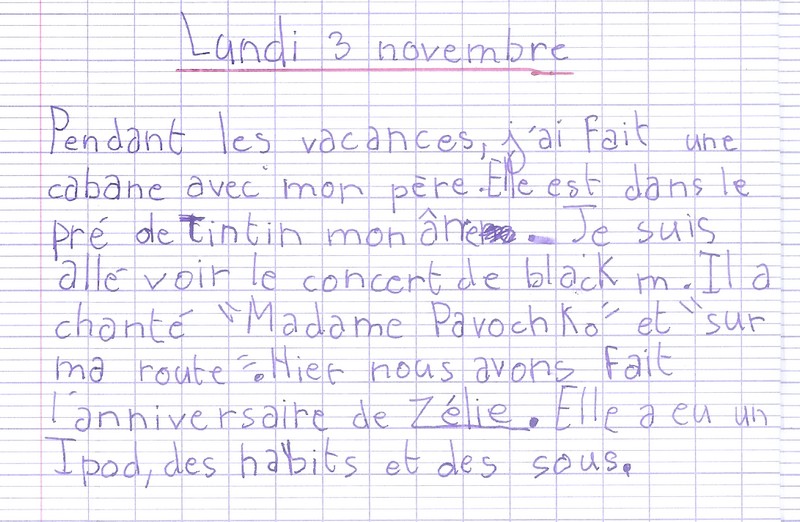 Lundi 3 novembre
Pendant les vacances, j'ai fait une
cabane avec mon père. Elle est dans le
pré de Tintin mon âne. Je suis
allé voir le concert de black m. Il a
chanté "Madame Pavochko" et "sur
ma route". Hier nous avons fait
l'anniversaire de Zélie. Elle a eu un
Ipod, des habits et des sous.